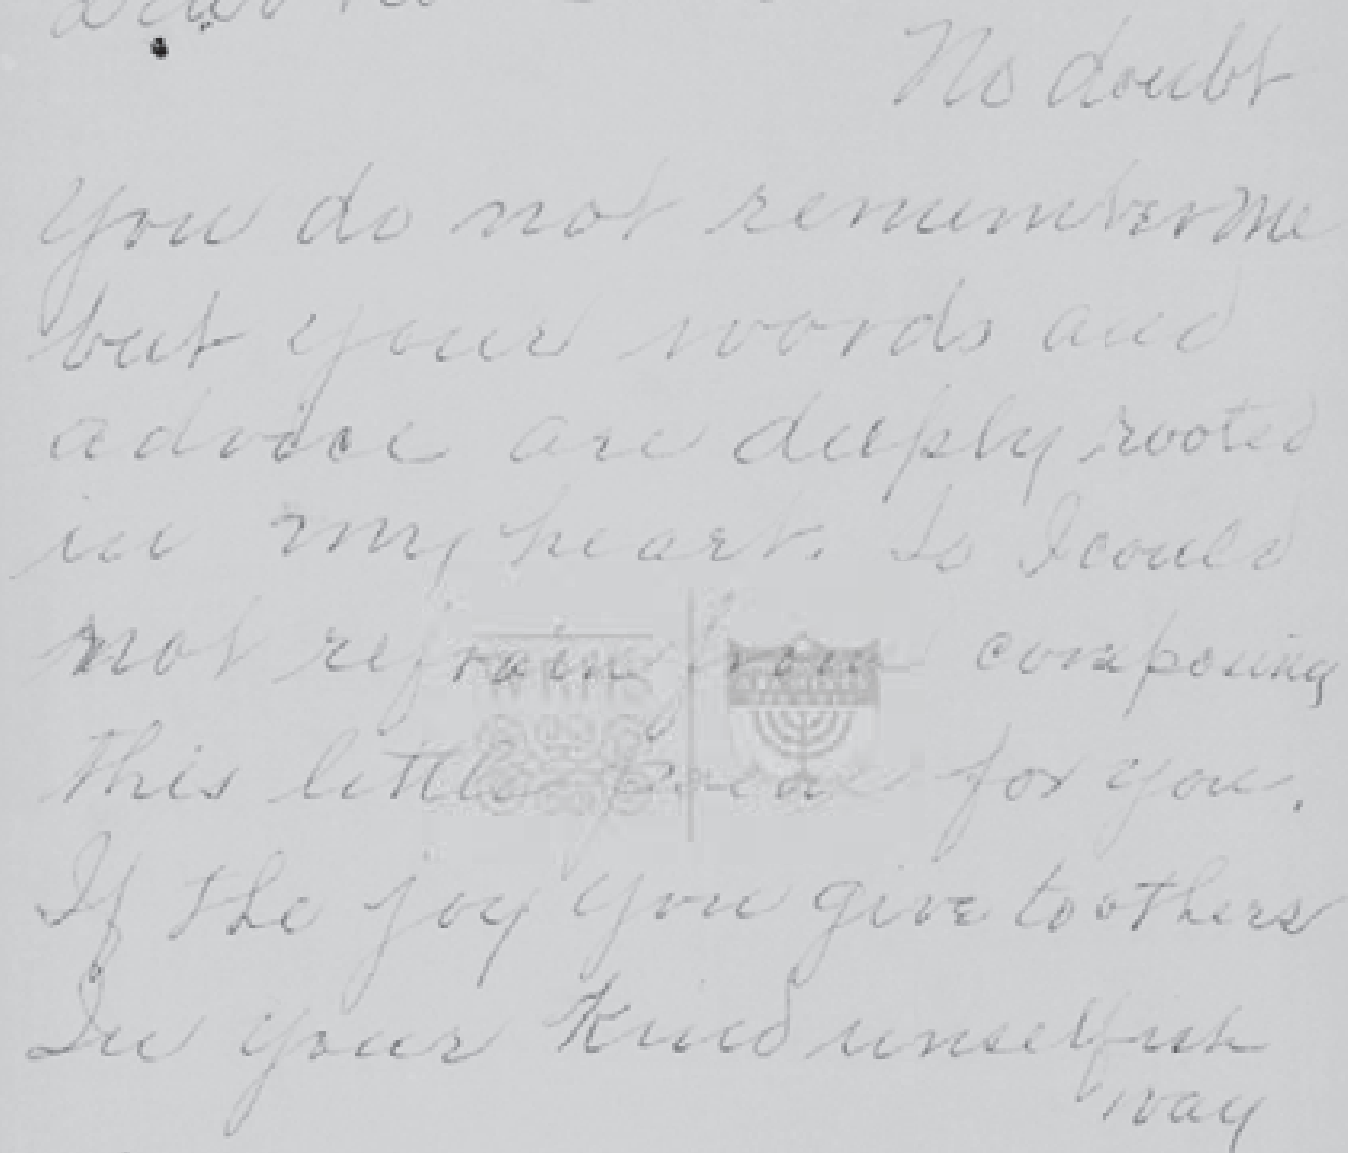 Dear
No doubt
you do not remember me
but your words and
advice are deeply rooted
in my heart. So I could
not refrain from composing
this little poem for you.
If the joy you give to others
In your kind unselfish
way